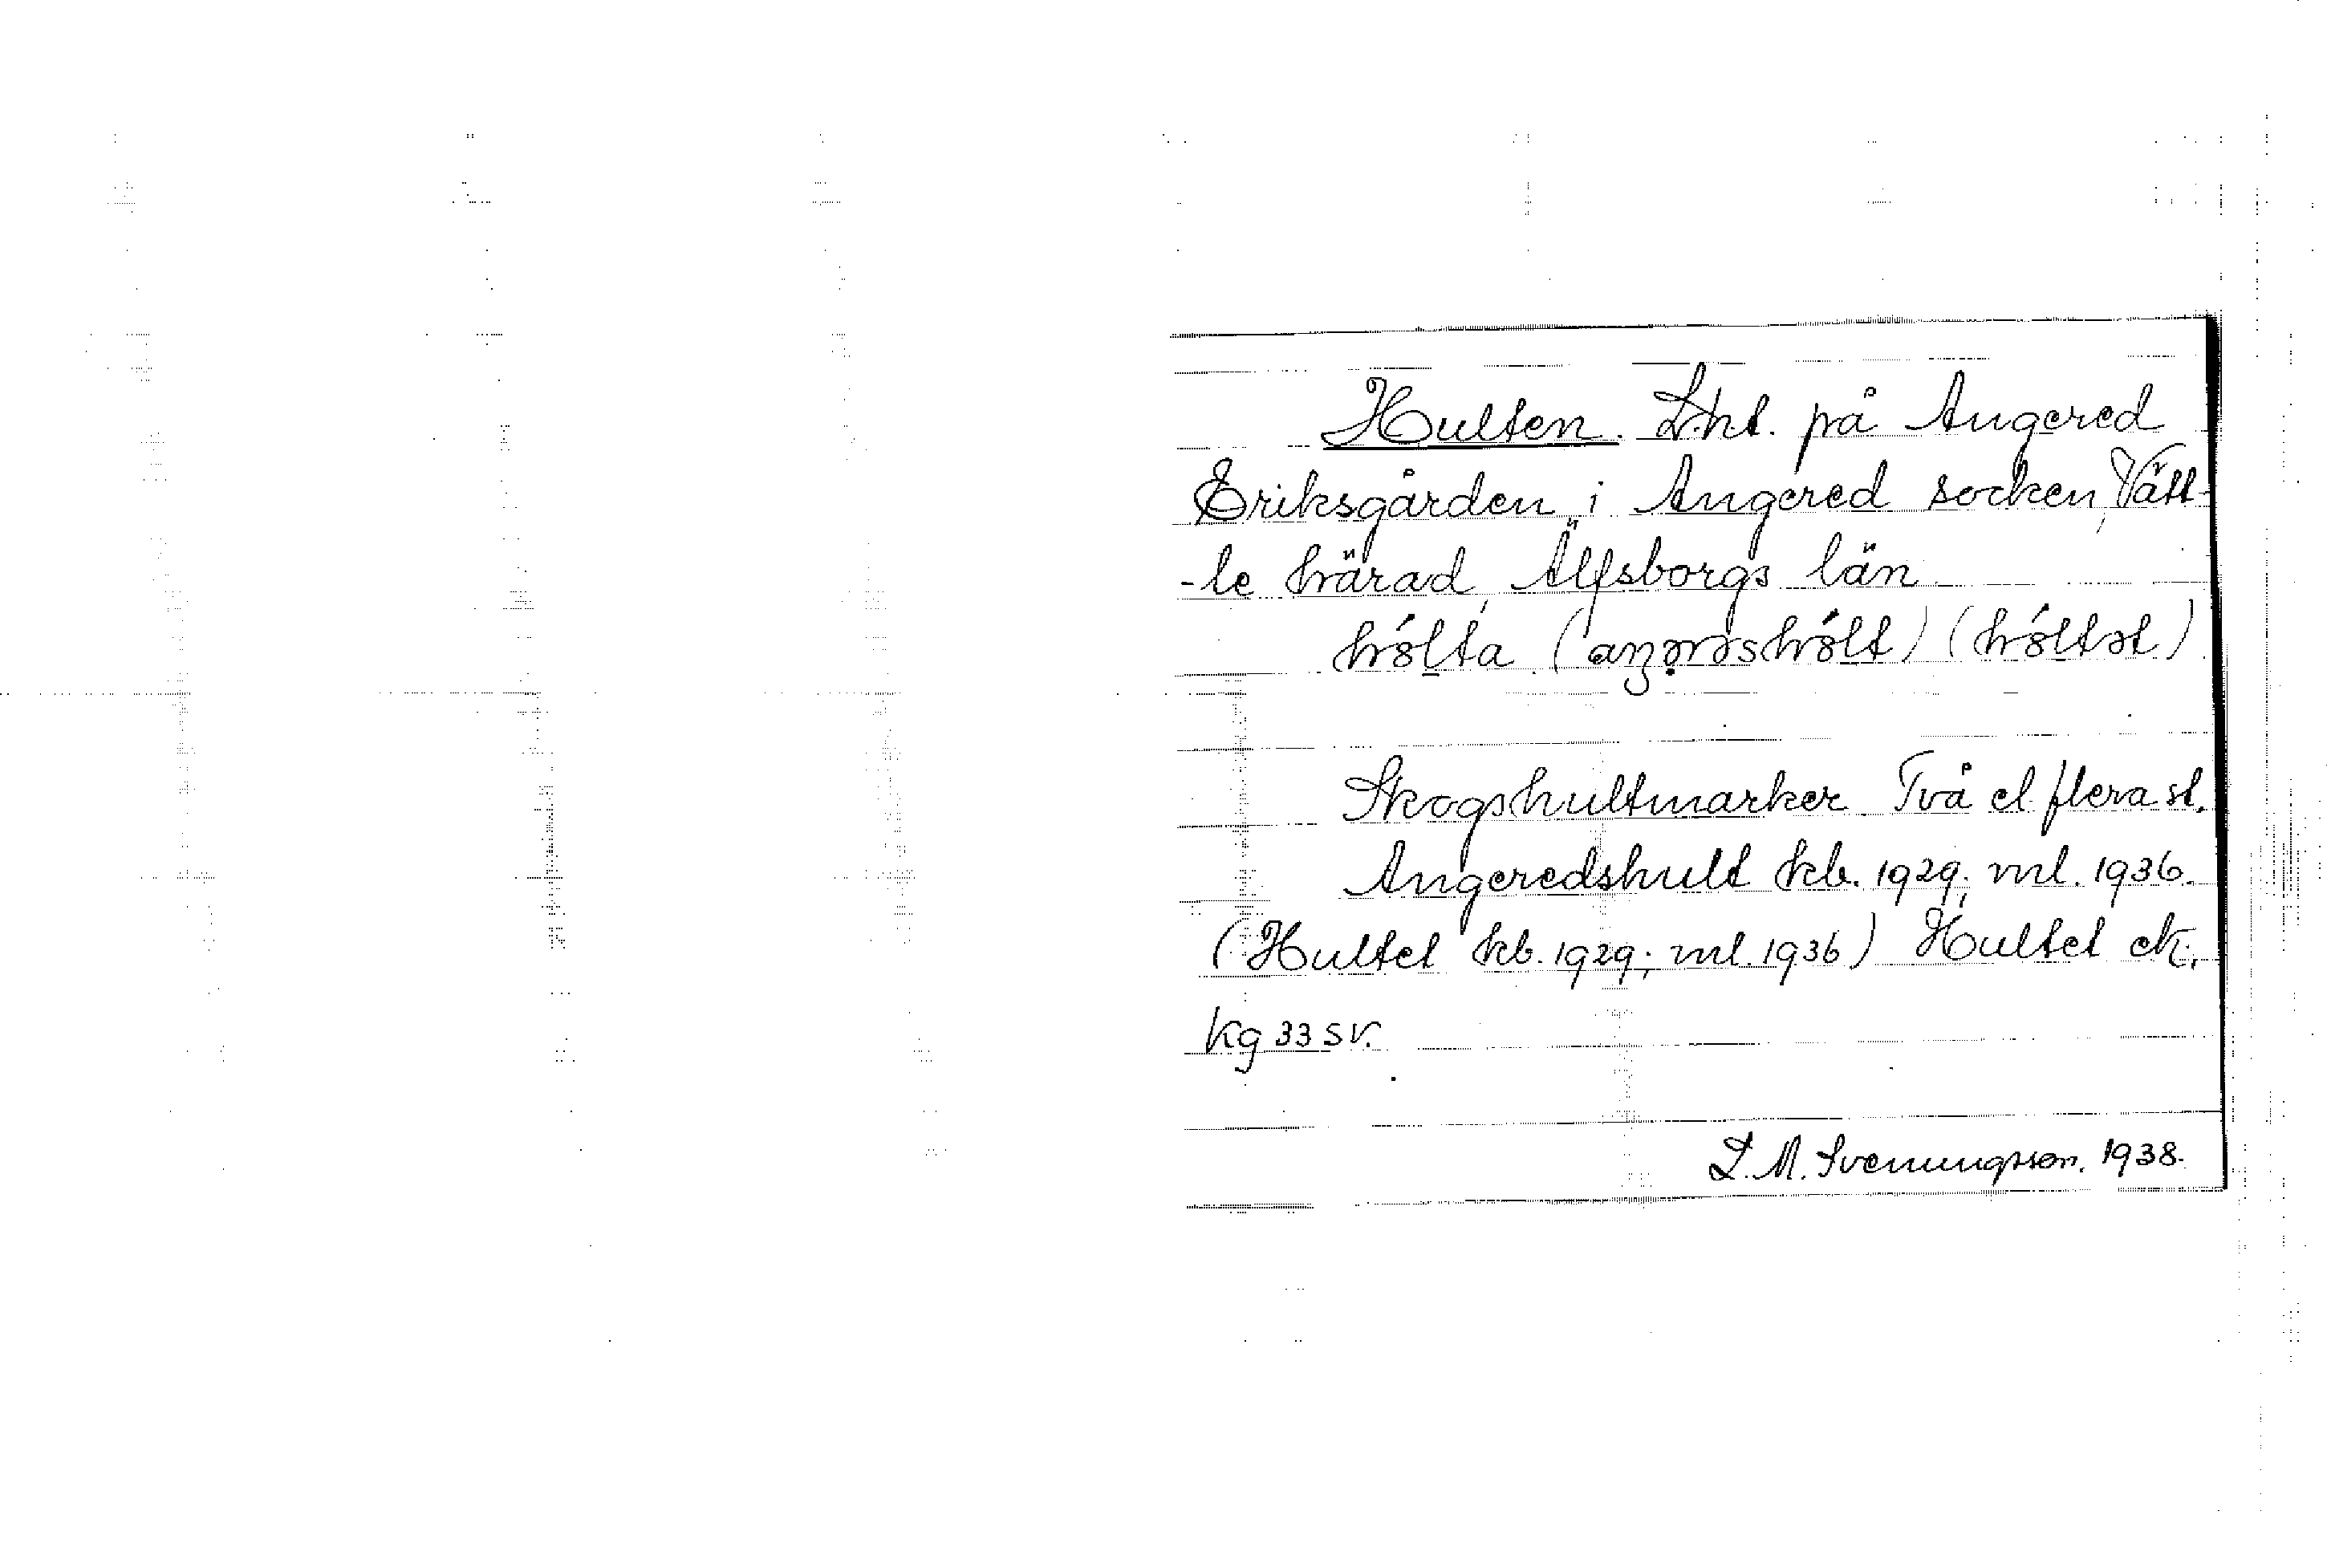 Hulten. Lht. på Angered
Eriksgården i Angered socken, Vätt-
-le härad, Älfsborgs län
hólta (aŋərəshólt) (hóltət)
Skogshultmarker. Två el flera st.
Angeredshult kb. 1929; ml. 1936.
(Hultet kb. 1929; ml. 1936) Hultet ek.
kg 33 SV.
L. M. Svenungsson. 1938.